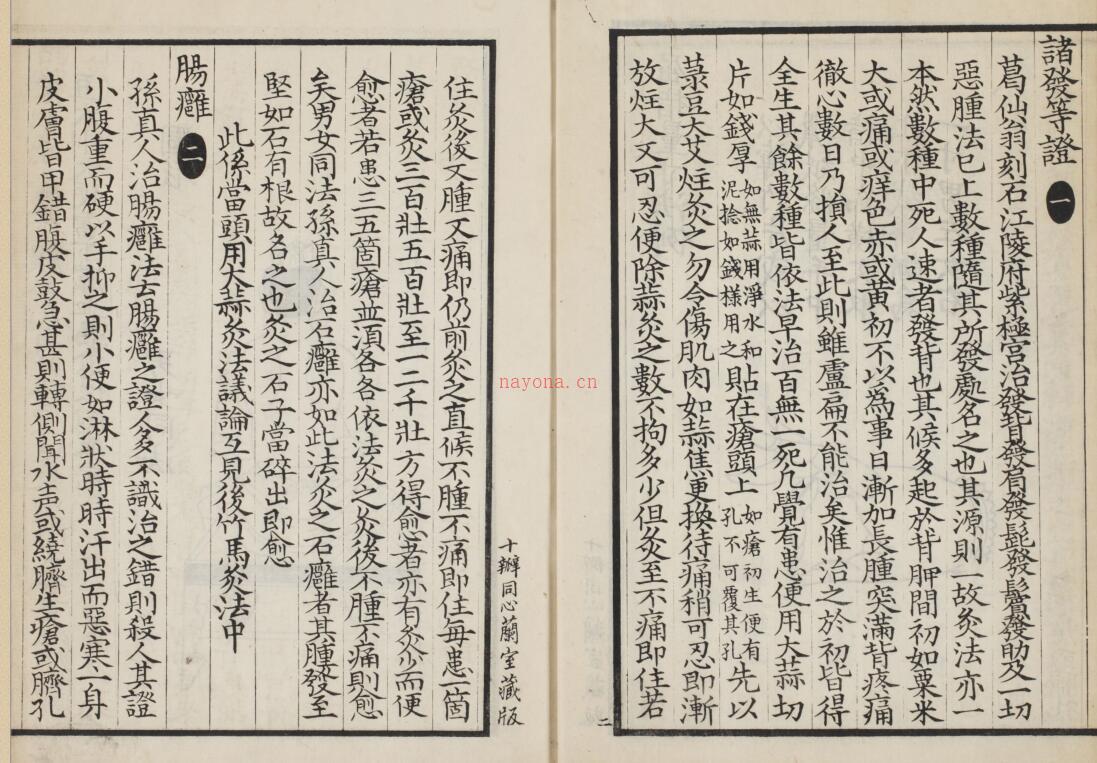 諸發等證 一
葛仙翁刻石江陵府紫極宮治發背發眉發髭發鬢發肋及一切
惡腫法已上數種隨其所發處名之也其源則一故灸法亦一
本然數種中死人速者發背也其候多起於背胛間初如粟米
大或痛或痒色赤或黃初不以為事日漸加長腫突滿背疼痛
徹心數日乃損人至此則雖盧扁不能治矣惟治之於初皆得
全生其餘數種皆依法早治百無一死凡覺有患便用大蒜切
片如錢厚如無蒜用淨水和泥捻如錢樣用之貼在瘡頭上如瘡初生便有孔不可覆其孔先以
菉豆大艾炷灸之勿令傷肌肉如蒜焦更換待痛稍可忍即漸
放炷大又可忍便除蒜灸之數不拘多少但灸至不痛即住若
二
十瓣同心蘭室藏版
住灸後又腫又痛即仍前灸之直候不腫不痛即住每患一箇
瘡或灸三百壯五百壯至一二千壯方得愈者亦有灸少而便
愈者若患三五箇瘡並須各各依法灸之灸後不腫不痛則愈
矣男女同法孫真人治石癰亦如此法灸之石癰者其腫發至
堅如石有根故名之也灸之石子當碎出即愈
此係當頭用大蒜灸法議論互見後竹馬灸法中
腸癰 二
孫真人治腸癰法云腸癰之證人多不識治之錯則殺人其證
小腹重而硬以手抑之則小便如淋狀時時汗出而惡寒一身
皮膚皆甲錯腹皮鼓急甚則轉側聞水声或繞臍生瘡或臍孔
nayona.cn